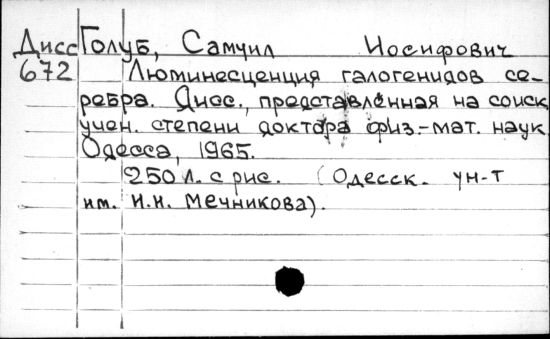 Дисс Голуб, Самуил Иосифович
672 Люминесценция галогенидов се-
ребра. Дисс., представленная на соиск.
учен. степени доктора физ.-мат. наук
Одесса, 1965.
250 л. с рис. (Одесск. ун-т
им. И.И. Мечникова).